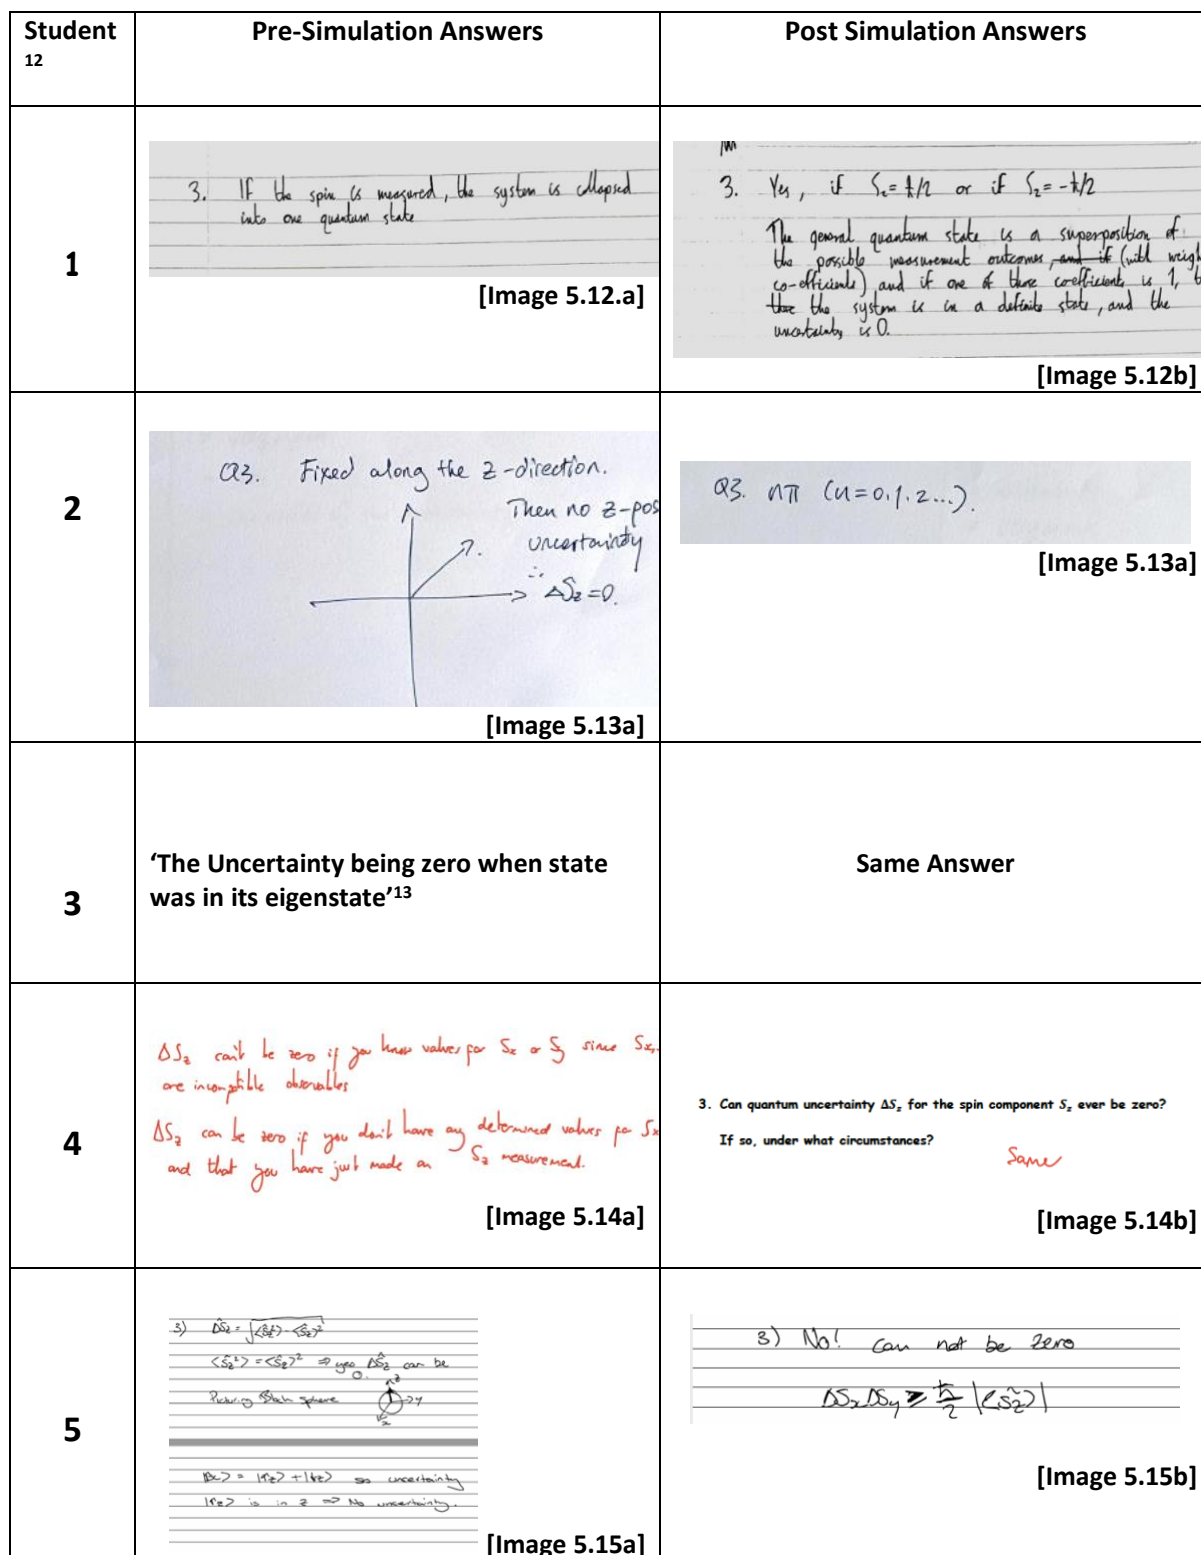 Student
12
Pre-Simulation Answers
Post Simulation Answers
1
3. If the spin is measured, the system is collapsed
into one quantum state
[Image 5.12.a]
3. Yes, if S_z = ħ/2 or if S_z = -ħ/2
The general quantum state is a superposition of
the possible measurement outcomes, and if (with weigh
co-efficients) and if one of these coefficients is 1, t
the system is in a definite state, and the
uncertainty is 0.
[Image 5.12b]
2
Q3. Fixed along the z-direction.
Then no z-pos
uncertainty
∴ ΔS_z=0.
[Image 5.13a]
Q3. nπ (n=0.1.2...).
[Image 5.13a]
3
‘The Uncertainty being zero when state
was in its eigenstate’¹³
Same Answer
4
ΔS_z can't be zero if you know values for S_x or S_y since S_x,
are incomptible observables
ΔS_z can be zero if you don't have any determined values for S_x
and that you have just made an S_z measurement.
[Image 5.14a]
3. Can quantum uncertainty ΔS_z for the spin component S_z ever be zero?
If so, under what circumstances?
Same
[Image 5.14b]
5
3) ΔŜ_z = √⟨Ŝ_z²⟩-⟨Ŝ_z⟩²
⟨Ŝ_z²⟩ = ⟨Ŝ_z⟩² ⇒ yes ΔŜ_z can be
0.
Picturing Bloch sphere
z
y
x
= |↑z⟩ + |↓z⟩ so uncertainty
|↑z⟩ is in z ⇒ No uncertainty.
[Image 5.15a]
3) No! can not be zero
ΔS_x ΔS_y ≥ ħ/2 |⟨Ŝ_z⟩|
[Image 5.15b]